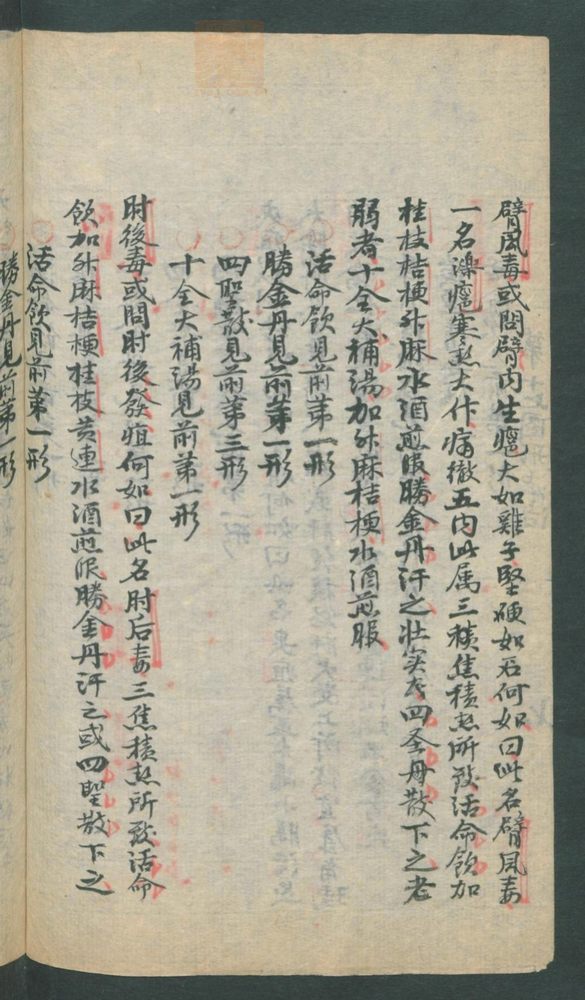 臂風毒或問臂內生瘡大如雞子堅硬如石何如曰此名臂風毒
一名澡瘡寒热大作痛徹五內此属三積焦積热所致活命飲加
桂枝桔梗升麻水酒煎服勝金丹汗之壮实者四圣丹散下之老
弱者十全大補湯加升麻桔梗水酒煎服
活命飲見前第一形
勝金丹見前第一形
四聖散見前第三形
十全大補湯見前第一形
肘後毒或問肘後發疽何如曰此名肘后毒三焦積热所致活命
飲加升麻桔梗桂枝黄連水酒煎服勝金丹汗之或四聖散下之
活命飲見前第一形
勝金丹見前第一形